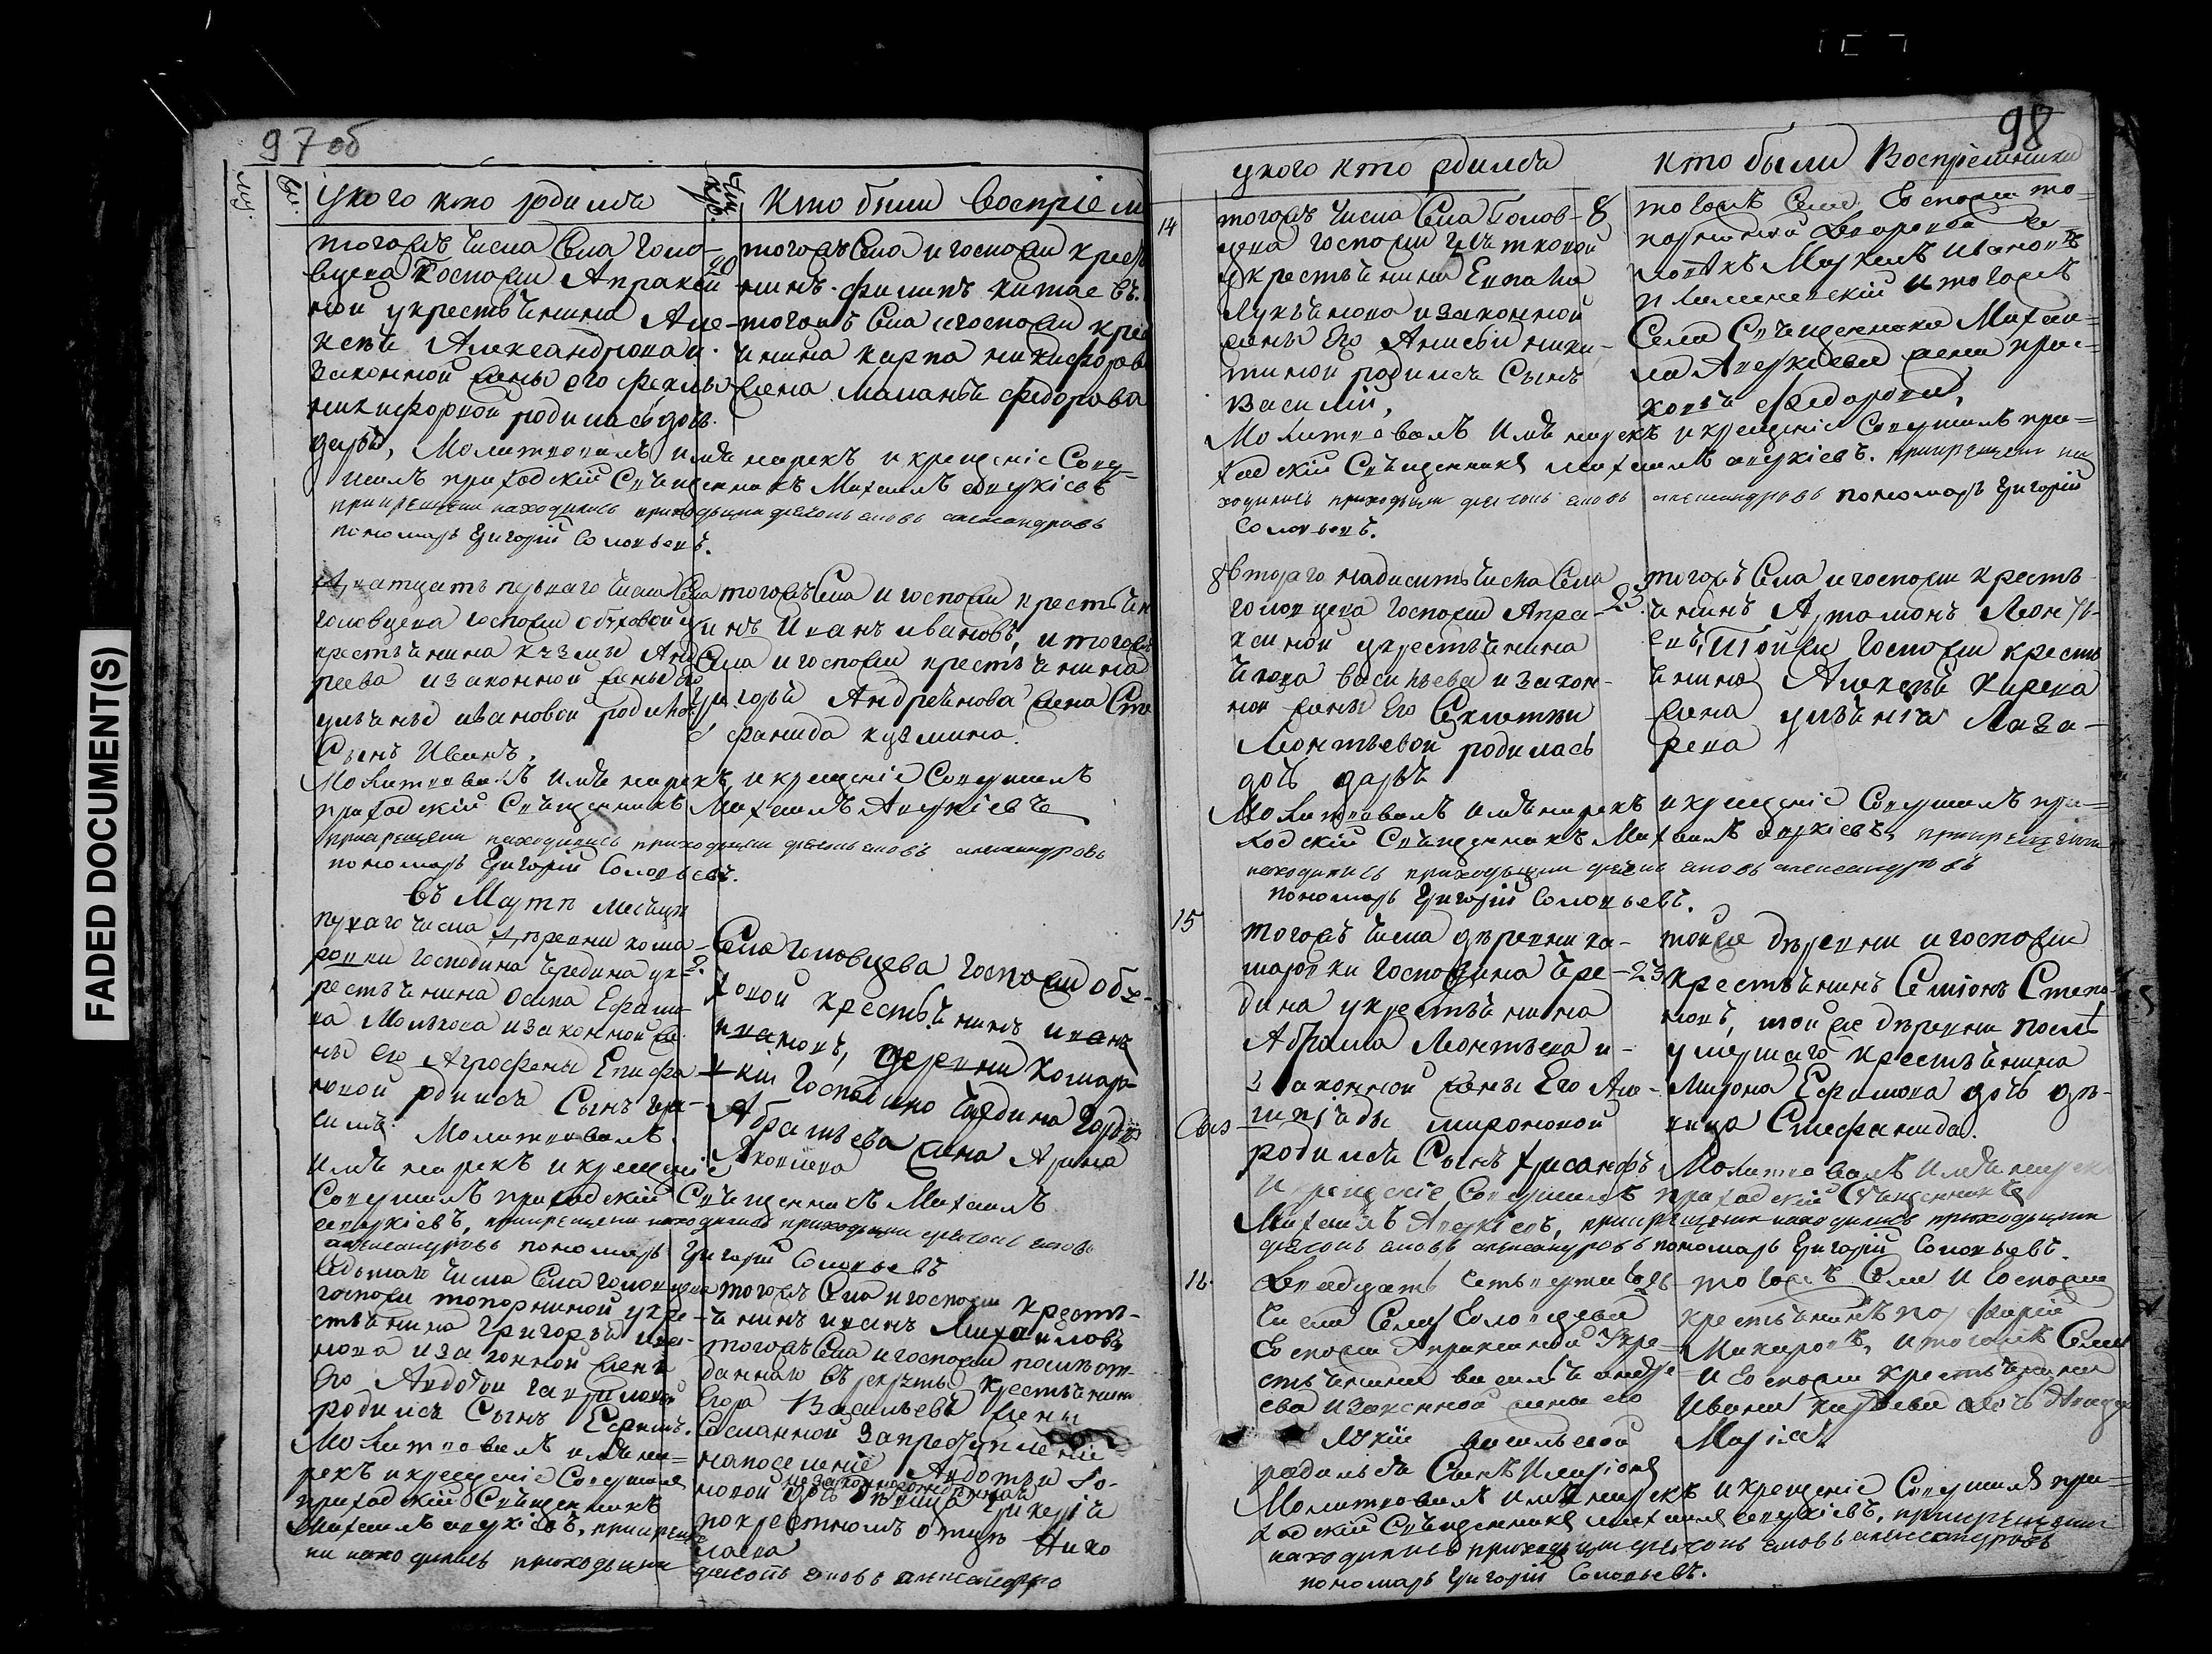 FADED DOCUMENT(S)
97 об
у кого кто родился
кто были восприем
тогожъ числа Села Голо-
вцева Госпожи Апракси
ной у крестьянина Але-
ксея Александрова и
законной жены его Феклы
никифоровой родилась дочь
дарья, Молитвовалъ имя нарекъ и крещение Совер-
шалъ приходский Священникъ Михаилъ Аверкиевъ
при крещении находились приходящии дьяконъ Iаковъ александровъ
пономарь Григорий Соловьевъ.
тогожъ Села и госпожи крес
нинъ Филипъ Китаевъ.
тогожъ Села и госпожи крес
янина карпа никифорова
жена Маланья Федорова
дватцать перваго числа Села
Головцева госпожи обуховой у
крестьянина Кузмы Анд
реева и законной жены его
ульяны ивановой родился
Сынъ Иванъ,
Молитвовалъ имя нарекъ и крещение Совершалъ
приходский Священникъ Михаилъ Аверкиевъ
при крещении находились приходящии дьяконъ Iаковъ александровъ
пономарь Григорий Соловьевъ.
тогожъ Села и госпожи крестьян
инъ Иванъ ивановъ, и тогожъ
Села и госпожи крестьянина
Григорья Андреянова жена Сте
фанида кузмина.
въ Марте месяце
перваго числа деревни кома-
ровки господина Чередина у к-
рестьянина осипа Ефимо-
ва и законной же-
ны его Агрофены Епифа
новой рдился Сынъ гра-
симъ. Молитвовалъ
имя нарекъ и крещение
Совершалъ приходский Священникъ Михаилъ
аверкиевъ, при крещении находились приходящии дьяконъ Iаковъ
александровъ пономарь Григорий Соловьевъ
2.
Села Головцева госпожи обу-
ховой крестьянинъ иванъ
ивановъ, деревни Комар
вки Господина Чередина
жена Арина
Яковлева
Седьмаго числа Села головцева
госпожи топорниной у кре-
стьянина Григорья ива-
нова и законной жены
Его Авдотьи гавриловой
родился Сынъ Ефимъ.
Молитвовалъ имя на=
рекъ и крещение Совершалъ
приходский Священникъ
Михаилъ аверкиевъ, при креще
нии находились приходящии
тогожъ Села и госпожи кресть-
янинъ иванъ Михайловъ
тогожъ Села и госпожи после от-
даннаго въ рекруты крестьянина
Егора Васильева жены
Сосланной за преступление
на поселение Авдотьи Го-
новой незаконнорожденная
дочь девица
по крестномъ отце Нико
лаева
дьяконъ Iаковъ александро
98
у кого кто рдился
кто были Восприемники
14
тогожъ числа Села Голов-
цева госпожи
у крестьянина Епата
Лукьянова и законной
жены Его Анисьи ники-
тиной родился Сынъ
Василий,
Молитвовалъ имя нарекъ и крещение Совершалъ при=
ходский Священникъ михаилъ аверкиевъ. при крещении на
ходились приходящии дьяконъ Iаковъ александровъ пономарь Григорий
Соловьевъ.
8
тогожъ Села Госпожи то-
порниной Дворовой че-
ловекъ Ивановъ
и тогожъ
Села Священника Михаи=
ла Аверкиева жена прас=
ковья Федорова,
8
втораго надесять числа Села
головцева Госпожи Апра-
ксиной у крестьянина
Якова васильева и закон-
ной жены Его
Леонтьевой родилась
дочь дарья
Молитвовалъ имя нарекъ и крещение Совершалъ при=
ходский Священникъ Михаилъ аверкиевъ, при крещении
находились приходящии дьяконъ Iаковъ александровъ
пономарь Григорий Соловьевъ.
тогожъ Села и госпожи кресть
янинъ Артамонъ Леонть-
евъ, Тойже Госпожи кресть
янина Алексея Кирева
жена ульяния Лаза-
рева
15
тогожъ числа деревни ко-
маровки господина Чере-
дина у крестьянина
Абрама Леонтьева и-
законной жены Его Але-
мироновой
родился Сынъ хрисанфъ
Молитвовалъ имя нарекъ
и крещение Совершалъ приходский Священникъ
Михаилъ Аверкиевъ, при крещении находились приходящии
дьяконъ Iаковъ александровъ пономарь Григорий Соловьевъ.
23
тойже деревни и госпожи
крестьянинъ Семионъ Степа
новъ, тойже деревни после
умершаго крестьянина
Мирона Ефимова дочь де-
вица Стефанида.
16
Двадцать четвертаго
Числа Села Головцева
Госпожи Апраксиной У кре-
стьянина василья андре
ева и законной жены его
васильевой
родился Сынъ Иларионъ
Молитвовалъ имя нарекъ и крещение Совершалъ при=
ходский Священникъ михаилъ аверкиевъ, при крещении
находились приходящии дьяконъ Iаковъ александровъ
пономарь Григорий Соловьевъ.
тогожъ Села и Госпожи
крестьянинъ
Макаровъ, и тогожъ Села
и Госпожи крестьянина
Ивана дочь девица
Мария.